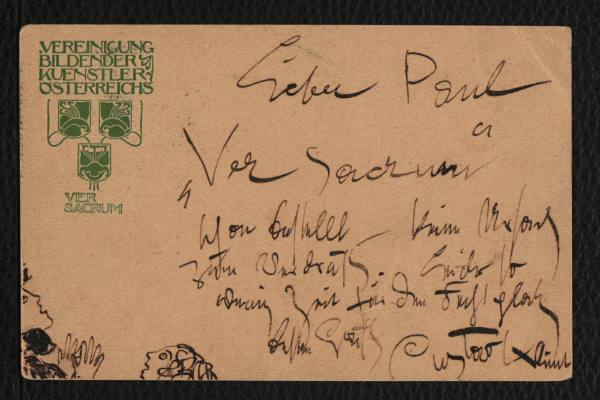 VEREINIGUNG
BILDENDER
KUENSTLER
ÖSTERREICHS
VER
SACRUM
Lieber Paul
"Ver Sacrum"
schon bestellt – keine
zum Leider so
wenig Zeit für den
besten Gruß Gustav Klimt